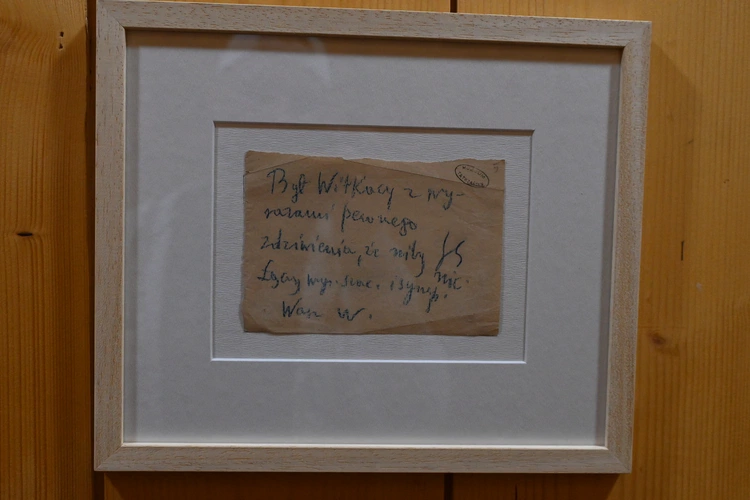 Był Witkacy z wy-
razami pewnego
zdziwienia, że niby
nic.
Łączy wyr. szac. i symp.
Wasz W.